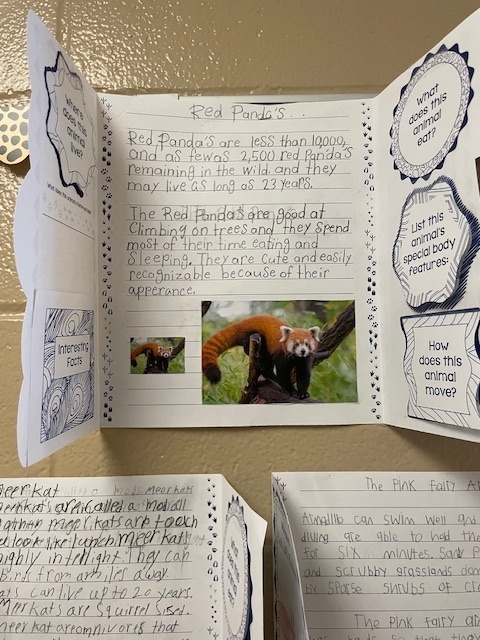 Where
does this
animal
live?
Interesting
Facts
Red Panda's
Red Panda's are less than 10,000,
and as few as 2,500 red Panda's
remaining in the wild. and they
may live as long as 23 years.
The Red Panda's are good at
Climbing on trees and they spend
most of their time eating and
sleeping. They are cute and easily
recognizable because of their
apperance.
What
does this
animal
eat?
List this
animal's
special body
features:
How
does this
animal
move?
meerkat
meerkat's are called a mob
meer kats are
highly
from a miles away
can live up to 20 years.
Meerkats are Squirrel Sised.
meer kat are omnivores that
The Pink Fairy
Armadillo can swim well and
diving are able to hold the
for six minutes. Sandy
and scrubby grasslands
by sparse shrubs of
The Pink fairy